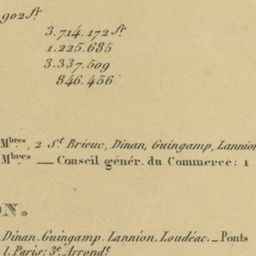 902 fr
3.714.172 fr
1.225.685
3.337.509
846.456
Mbres, 2 St Brieuc, Dinan, Guingamp, Lannion
Mbres — Conseil génér. du Commerce: 1
ON.
Dinan. Guingamp. Lannion. Loudéac. — Ponts
1. Paris: 3e Arrondt